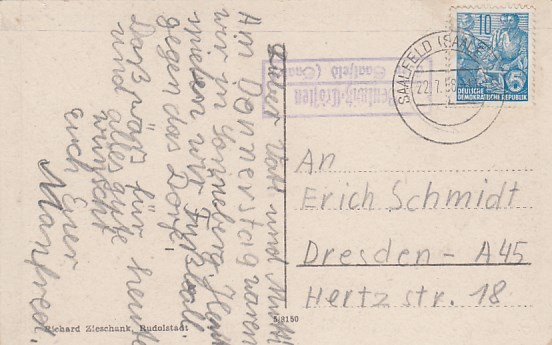 Lieber Vati und Mutti
Am Dennerstag waren
wir in Sonneberg. Heute
spielen wir Fußball
gegen das Dorf.
Das wäß für heute
und alles gute
wünscht
euch Euer
Manfred.
An
Erich Schmidt
Dresden - A45
Hertz str. 18
10
5
DEUTSCHE
DEMOKRATISCHE REPUBLIK
SAALFELD (SAALE)
22.7.58
Saalfeld (Saale)
Richard Zieschank, Rudolstadt
5/3150